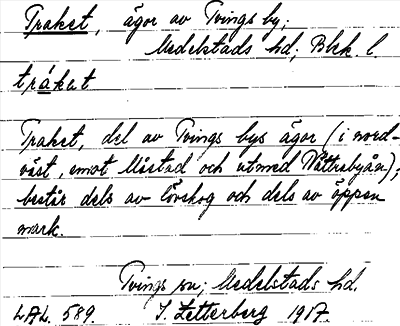 Traket, ägor av Tvings by;
Medelstads hd; Blek. l.
tråkat
Traket, del av Tvings bys ägor (i nord-
väst, emot Måstad och utmed Wättrabyån);
består dels av lövskog och dels av öppen
mark.
Tvings sn; Medelstads hd.
LAL. 589. J. Zetterberg 1917.